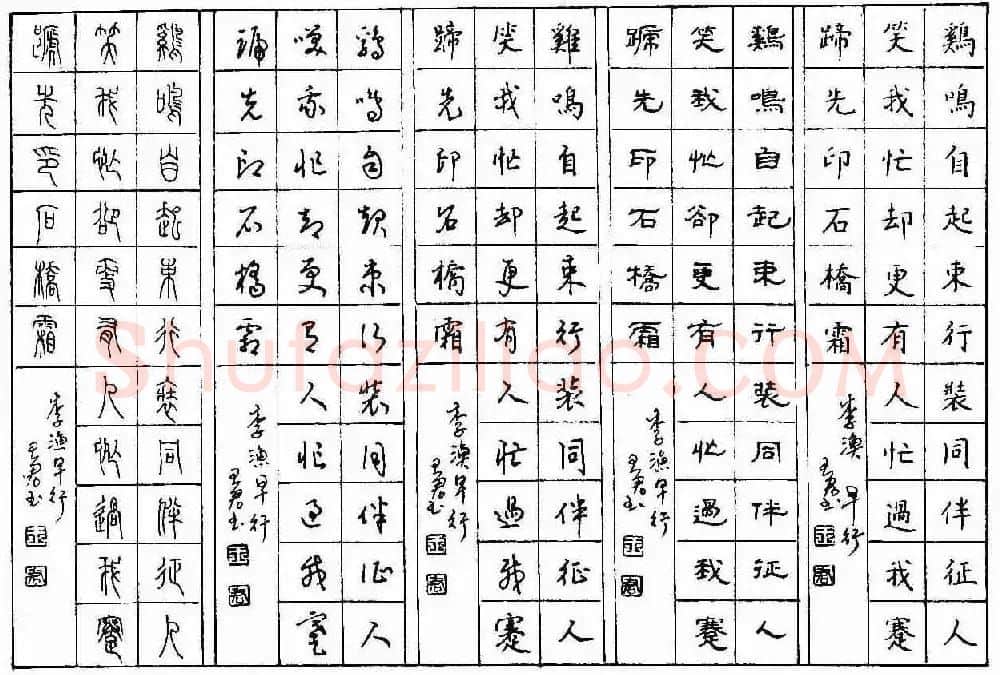 鷄鳴自起束行裝同伴征人
笑我忙却更有人忙過我蹇
蹄先印石橋霜
李漁早行
鷄鳴自起束行裝同伴征人
笑我忙卻更有人忙過我蹇
蹄先印石橋霜
李漁早行
雞鳴自起束行裝同伴征人
笑我忙却更有人忙過我蹇
蹄先印石橋霜
李漁早行
鷄鳴自起束行裝同伴征人
笑我忙却更有人忙過我蹇
蹄先印石橋霜
李漁早行
鷄鳴自起束行裝同伴征人
笑我忙卻更有人忙過我蹇
蹄先印石橋霜
李漁早行
Shufaziliao.COM